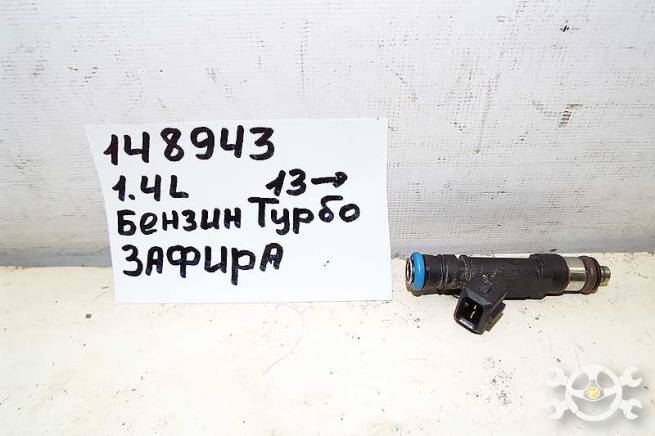 148943
1.4L 13→
Бензин Турбо
ЗАФИРА